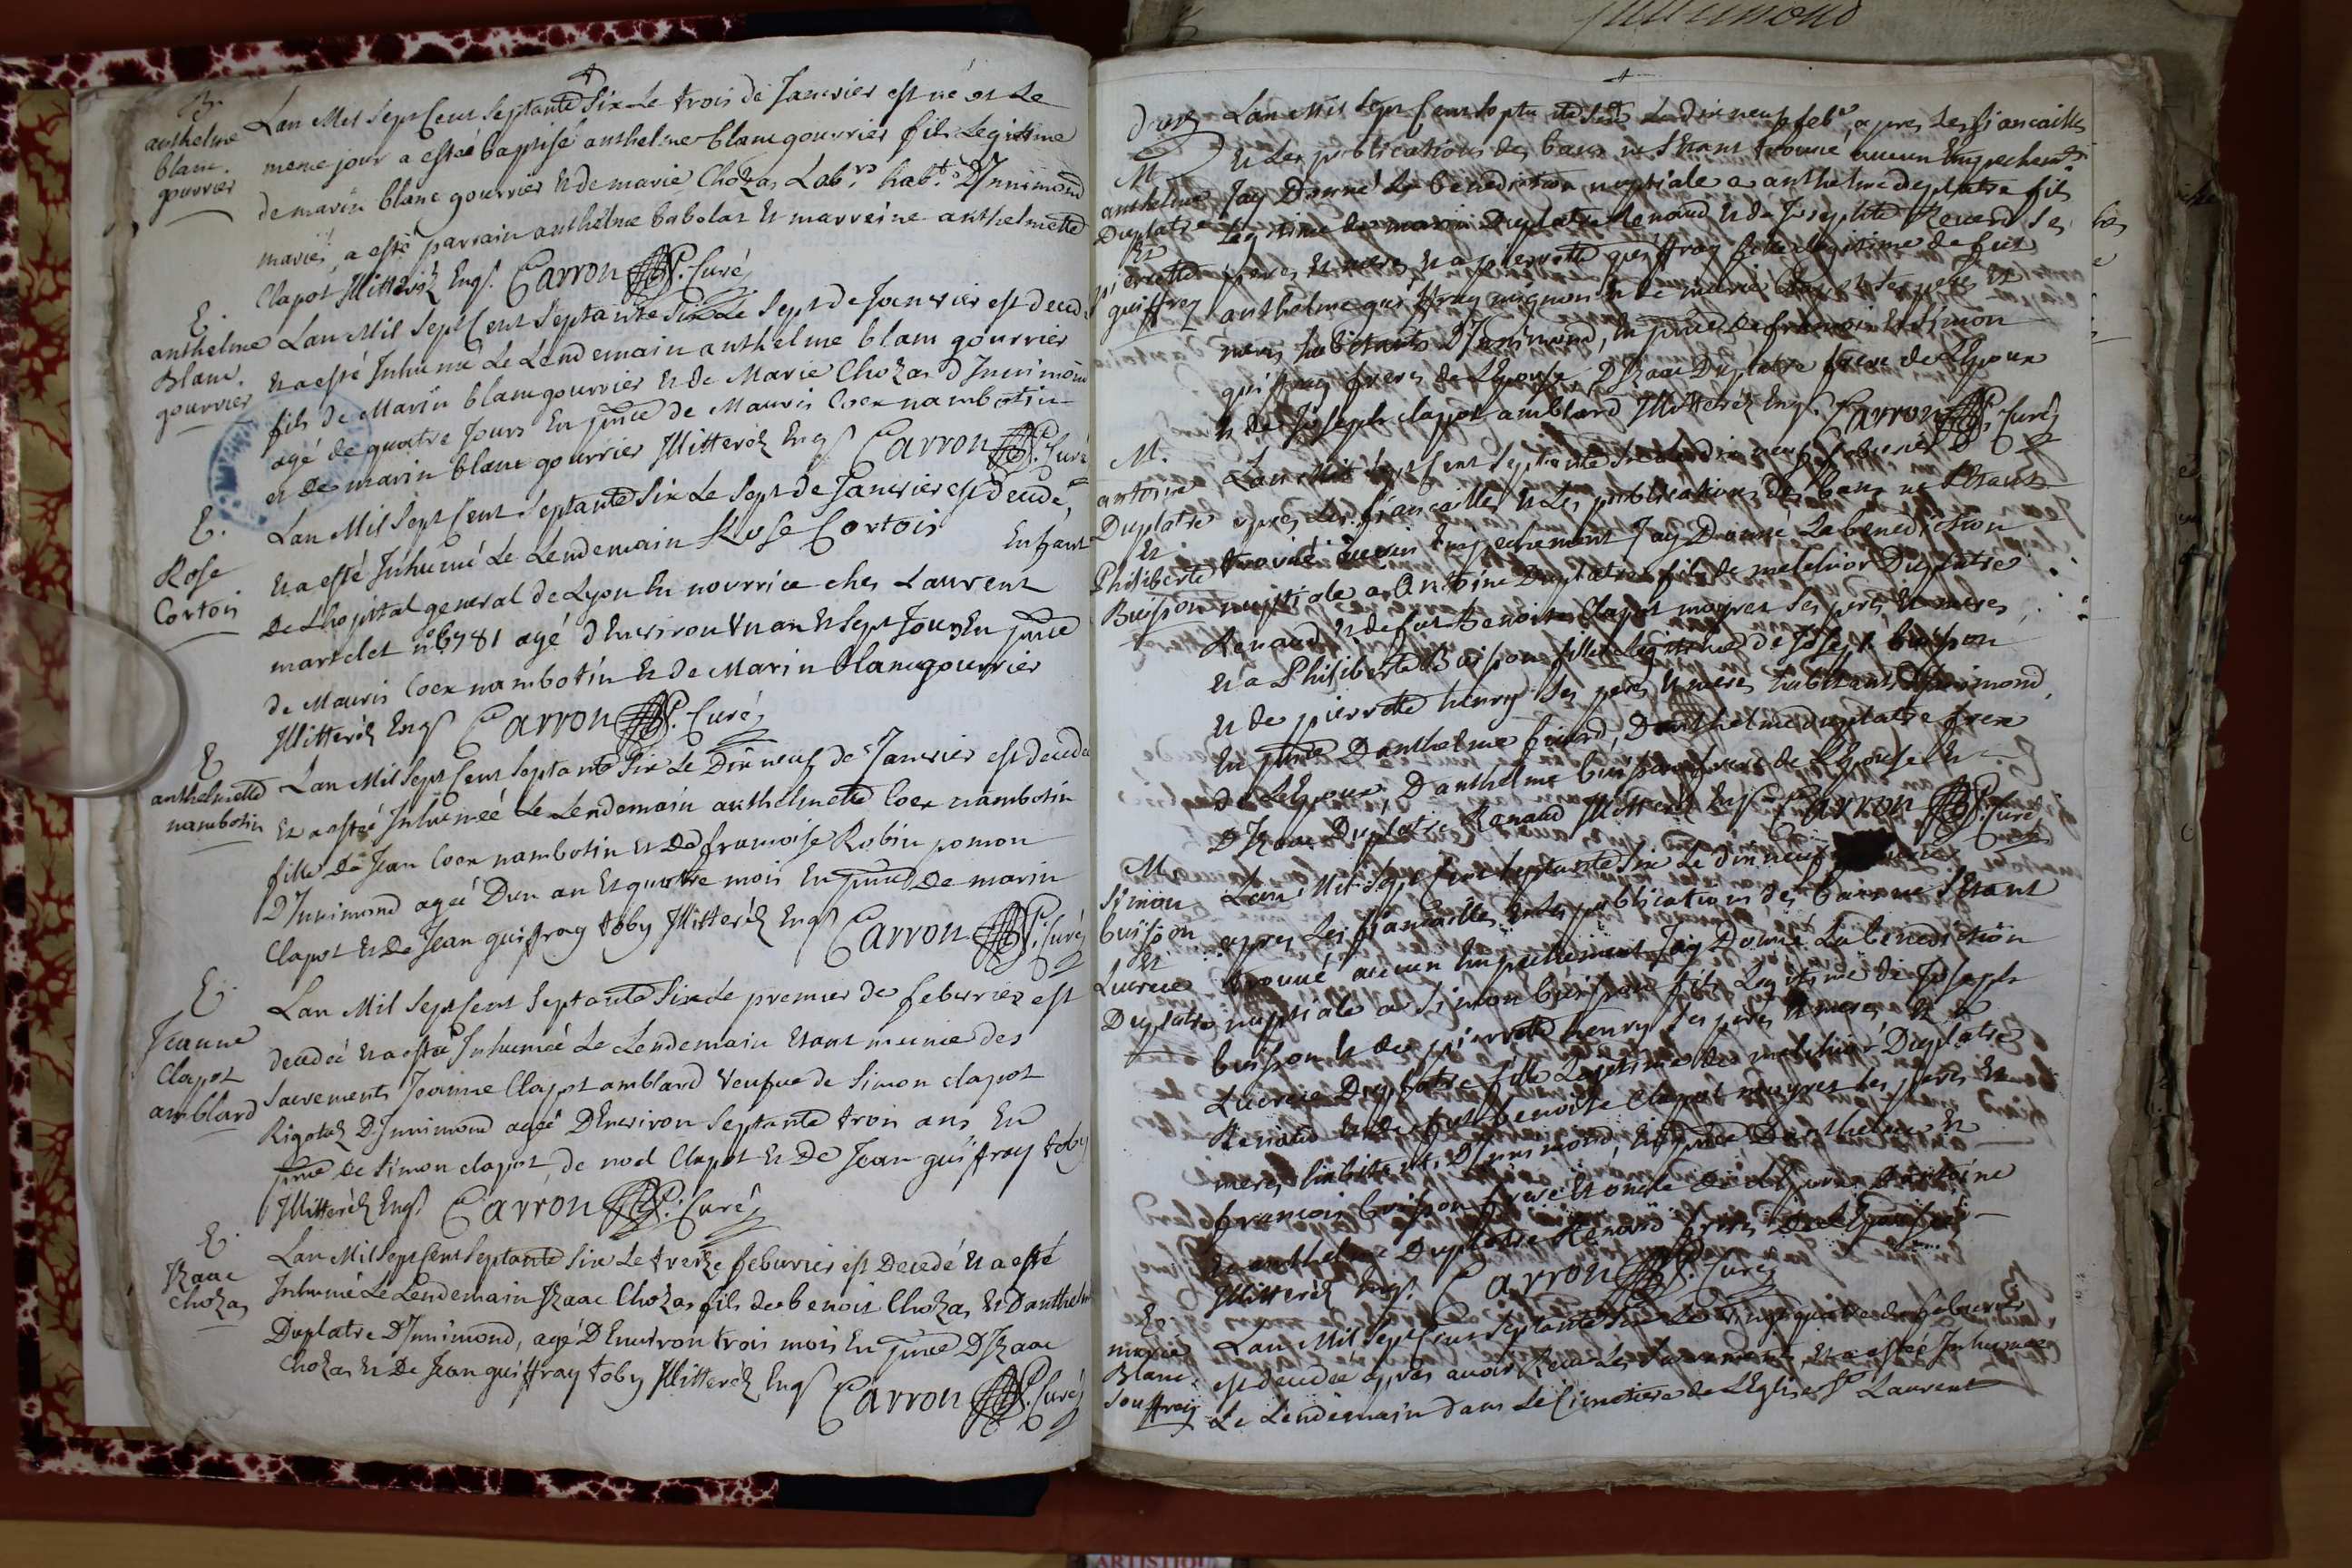 B.
anthelme
blanc
gourrier
Lan Mil sept Cent septante Six Le trois de Janvier est né et Le
meme jour a esteé baptisé anthelme blanc gourrier fils Legitime
de marin blanc gourrier et de marie Chozas Labrs habts D'Innimond
mariés, a esté parrain anthelme babolat et marreine anthelmette
Clapot Illitterés Engs. Carron Curé
E.
anthelme
Blanc
gourrier
Lan Mil Sept Cent Septante Six Le Sept de Janvier est deced
et a esté Inhumé Le Lendemain anthelme blanc gourrier
fils de Marin blanc gourrier et de Marie Chozas d'Innimond
agé de quatre Jours En pnce de Mauris Coex nambotin
et de marin blanc gourrier Illitterés Engs Carron Curé
E.
Rose
Cortois
Lan Mil Sept Cent Septante Six Le Sept de Janvier est decedé,
et a esté Inhumé Le Lendemain Rose Cortois Enfant
De L'hopital general de Lyon En nourrice ches Laurent
martelet n° 6781 agé d'Environ Un an et Sept Jours En pnce
de Mauris Coex nambotin et de Marin blanc gourrier
Illitterés Engs Carron Curé
E
anthelmette
nambotin
Lan Mil Sept Cent Septante Six Le Dix neuf de Janvier est deced
et a esteé Inhumeé Le Lendemain anthelmette Coex nambotin
fille de Jean Coex nambotin et De francoise Robin pomon
D'Innimond ageé Dun an et quattre mois En pnce De marin
Clapot et De Jean guiffray toby Illitterés Engs Carron Curé
E.
Jeanne
Clapot
amblard
Lan Mil Sept Cent Septante Six Le premier de feburier est
decedeé et a esteé Inhumeé Le Lendemain etant munie des
Sacrements Jeanne Clapot amblard veufue de Simon clapot
Rigolet D'Innimond ageé D'Environ Septante trois ans En
pnce de Simon clapot, de noel Clapot et De Jean guiffray toby
Illitterés Engs Carron Curé
E.
Izaac
Chozas
Lan Mil Sept Cent Septante Six Le treize feburier est Decedé et a esté
Inhumé Le Lendemain Izaac Chozas fils de benoit Chozas et D'anthelm
Duplatre D'Innimond, agé D'Environ trois mois En pnce D'Izaac
Chozas et De Jean guiffray toby Illitterés Engs
Carron Curé
M
anthelme
Duplatre
Et
pierrette
guiffray
Lan Mil Sept Cent Septante Six Le dix neuf feb apres Les fiancailles
et Les publications des bans ne s'Etant trouvé aucun Empechemt
Jay Donné La benediction nuptiale a anthelme duplatre fils
Legitime de marin Duplatre Renaud et de Josephte Revard Ses
peres et meres et a pierrette guiffray fille legitime de feu
anthelme guiffray mignon et de marie Ses peres et
meres habitants D'Innimond, En pnce De francois et Simon
guiffray freres de L'Epouse, D'Izaac Duplatre frere de L'Epoux
et de Joseph clapot amblard Illitterés Engs. Carron Curé
M.
antoine
Duplatre
Et
Philiberte
Buisson
Lan Mil Sept Cent Septante Six Le dix neuf feburier
apres Les fiancailles et Les publications des bans ne s'Etant
trouvé aucun Empechement Jay Donné La benediction
nuptiale a Antoine Duplatre fils de melchior Duplatre
Renaud et de feu Benoite Clapot mugret Ses peres et meres
et a Philiberte Buisson fille legitime de Joseph buisson
et de pierrette henry Ses peres et meres habitants D'Innimond,
En pnce D'anthelme Duplatre frere
de L'Epoux D'anthelme buisson frere de L'Epouse et
D'Izaac Duplatre Renaud Illitterés Engs Carron Curé
M
Simon
buisson
Et
Lucrece
Duplatre
Lan Mil Sept Cent Septante Six Le dix neuf
apres Les fiancailles et Les publications des bans ne s'Etant
trouvé aucun Empechement Jay Donné La benediction
nuptiale a Simon buisson fils Legitime de Joseph
buisson et de pierrette henry Ses peres et meres et a
Lucrece Duplatre fille Legitime de melchior Duplatre
Renaud et de feu benoite Clapot mugret Ses peres et
meres habitants D'Innimond, En pnce D'anthelme et
francois buisson frere et oncle de L'Epoux D'antoine
et anthelme Duplatre Renaud freres De L'Epouse
Illitterés Engs. Carron Curé
E.
marie
Blanc
Souffray
Lan Mil Sept Cent Septante Six Le vingt quatre de feburier
est decedée apres avoir Receu Les Sacrements et a esteé Inhumeé
Le Lendemain dans Le Cimetiere de L'Eglise St Laurent